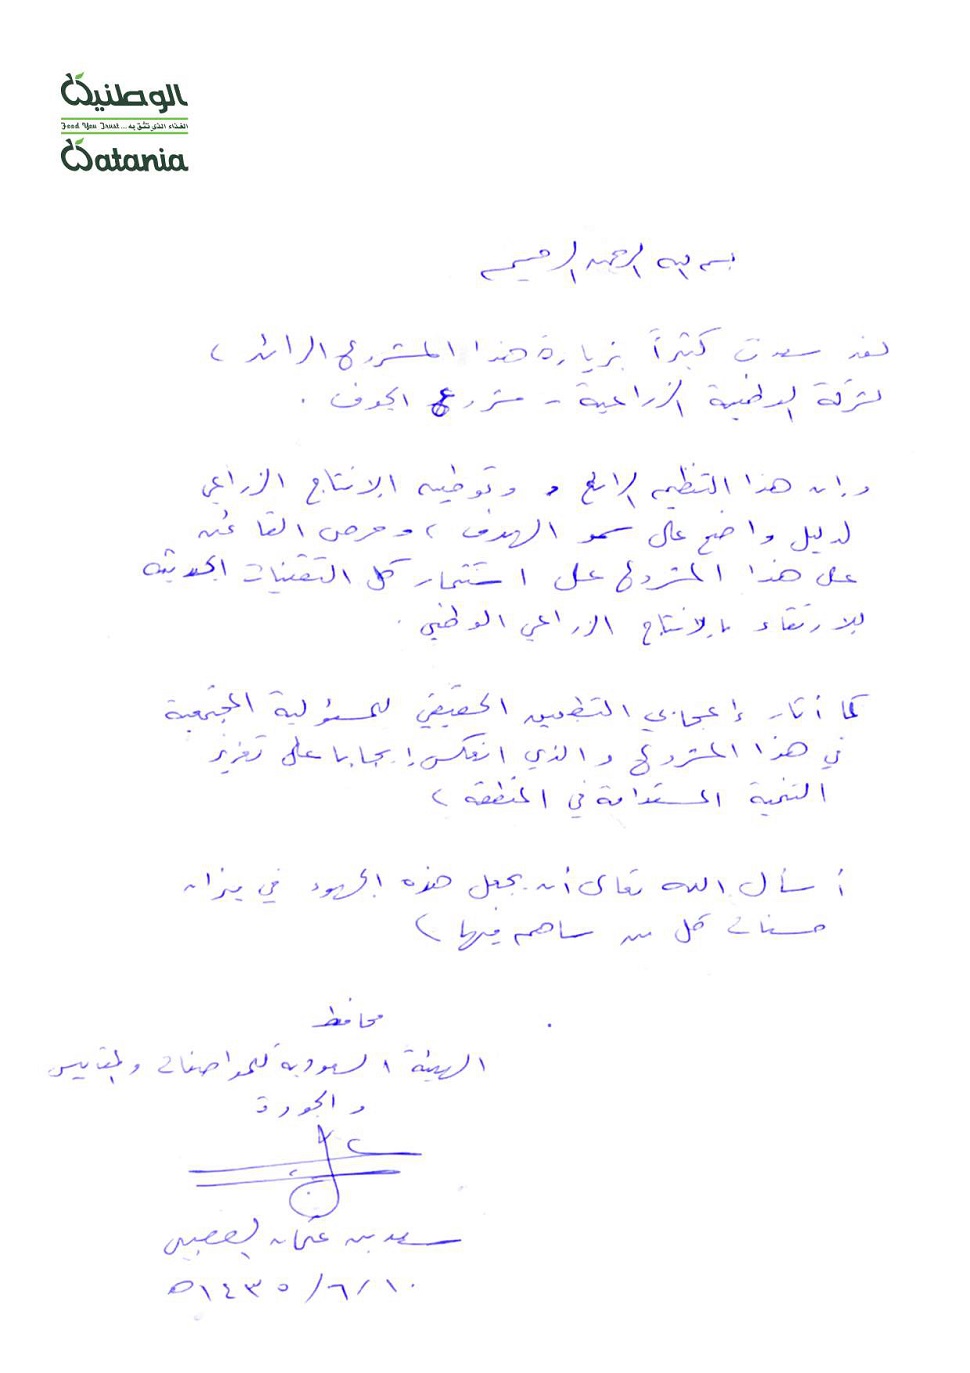 الوطنية
Food You Trust ... الغذاء الذي تثق به
Watania
بسم الله الرحمن الرحيم
لقد سعدت كثيراً بزيارة هذا المشروع الرائد ،
لشركة الوطنية الزراعية - مشروع الجوف .
وإن هذا التنظيم الرائع و وتوطين الإنتاج الزراعي
لدليل واضح على سمو الهدف ، وحرص القائمين
على هذا المشروع على استثمار كل التقنيات الحديثة
للارتقاء بالإنتاج الزراعي الوطني .
كما أثار إعجابي التطبيق الحقيقي للمسئولية المجتمعية
في هذا المشروع والذي انعكس إيجابا على تعزيز
التنمية المستدامة في المنطقة ،
أسأل الله تعالى أن يجعل هذه الجهود في ميزان
حسنات كل من ساهم فيها ،
محافظ
الهيئة السعودية للمواصفات والمقاييس
والجودة
سعد بن عثمان القصبي
١٤٣٥/٦/١٠هـ